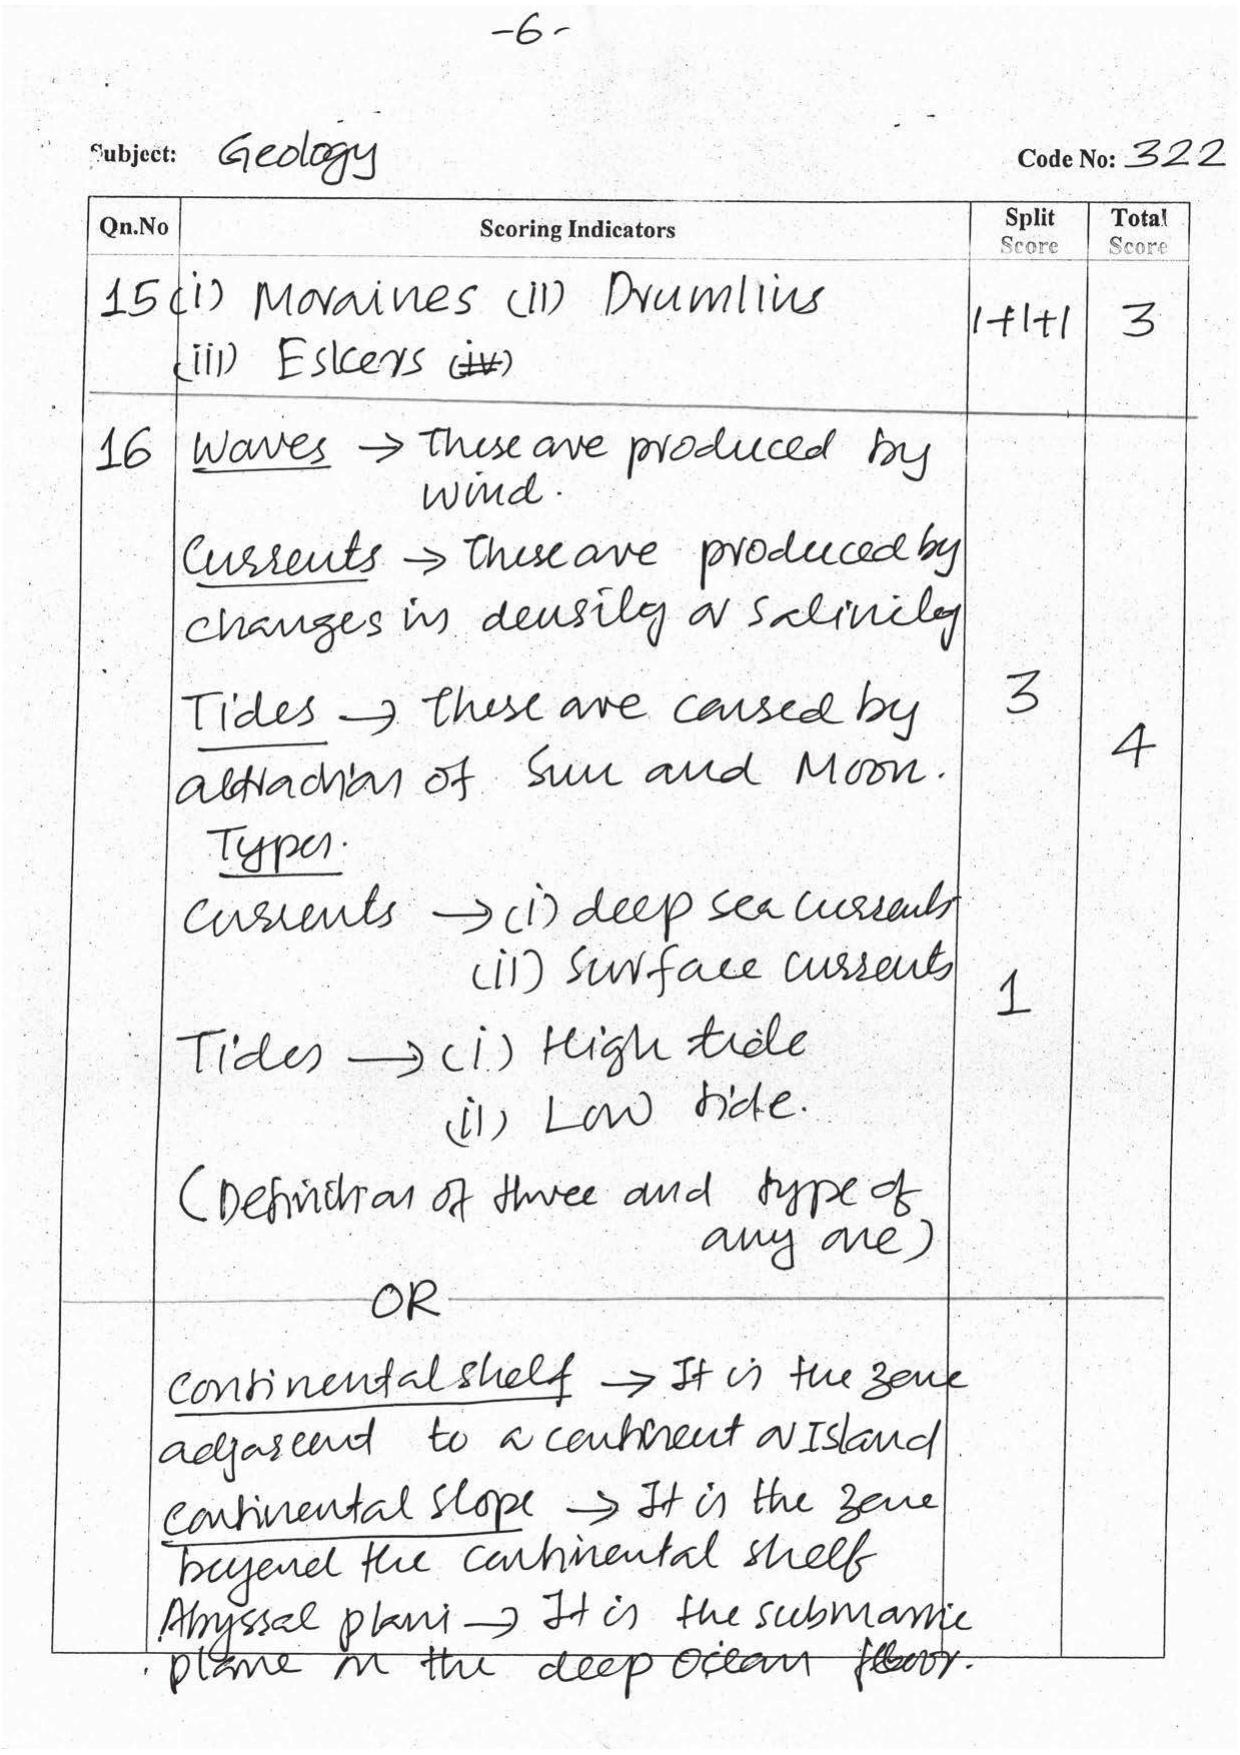 -6-
Subject: Geology Code No: 322
Qn.No Scoring Indicators Split Score Total Score
15 (i) Moraines (II) Drumlins
(iii) Eskers (iv) 1+1+1 3
16 Waves → These are produced by
wind.
Currents → These are produced by
changes in density or salinity
Tides → These are caused by 3
attraction of Sun and Moon. 4
Types.
Currents → (i) deep sea currents
(ii) Surface currents
1
Tides → (i) High tide
(ii) Low tide.
(Definition of three and type of
any one)
OR
Continental shelf → It is the zone
adjascent to a continent or Island
Continental slope → It is the zone
beyond the continental shelf
Abyssal plani → It is the submarine
plane in the deep ocean floor.